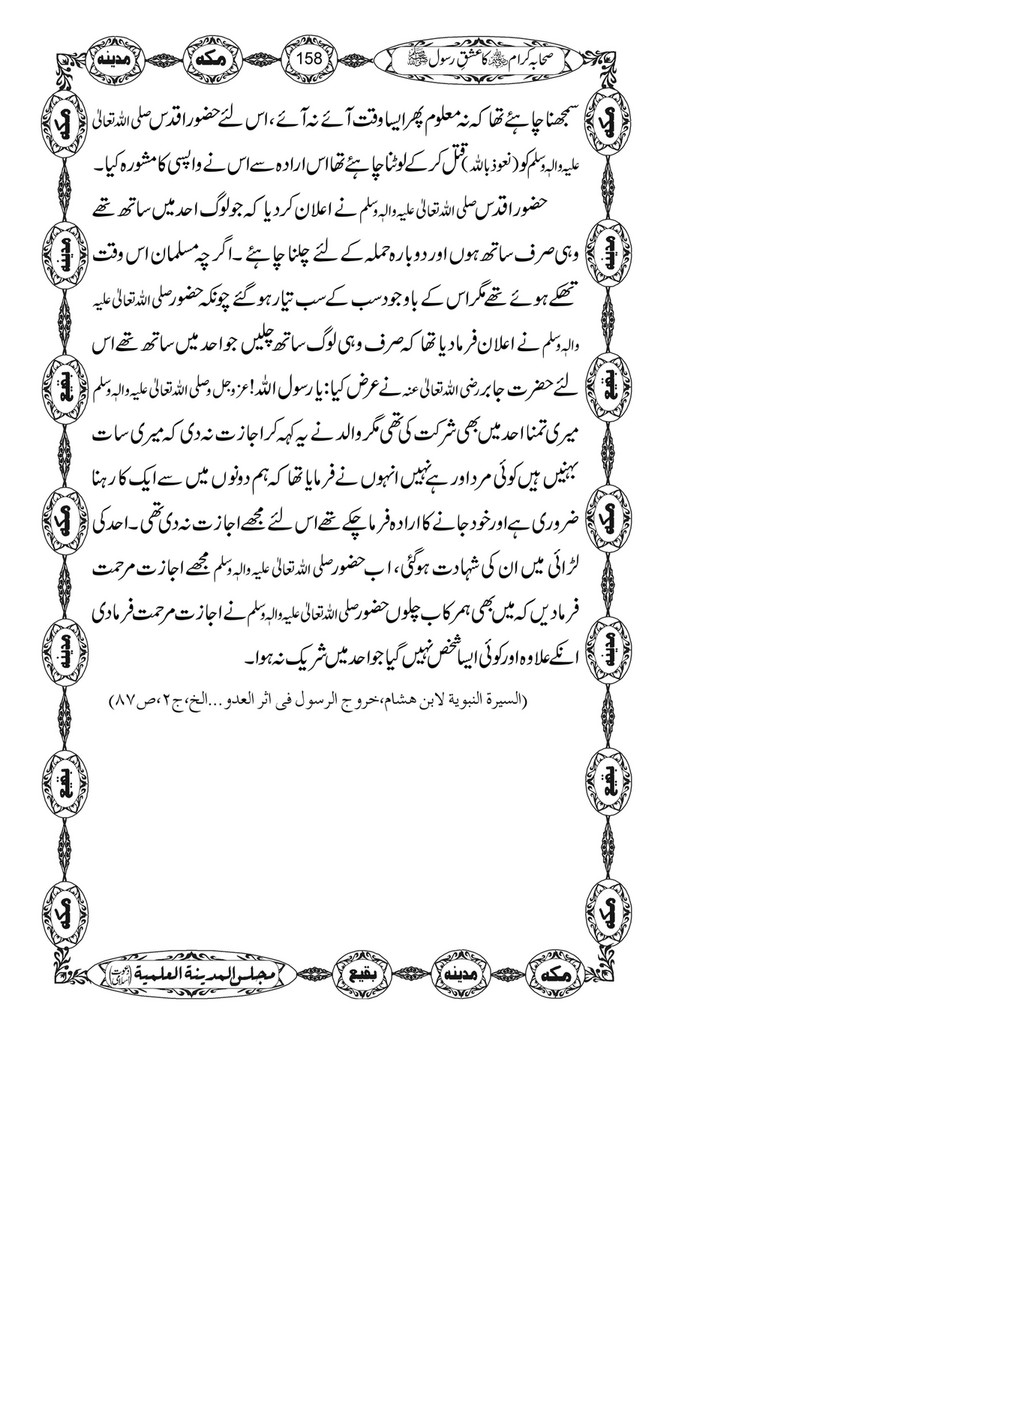 صحابہ کرام ﷺ کا عشق رسول ﷺ 158 مکه مدینه
سمجھنا چاہئے تھا کہ نہ معلوم پھر ایسا وقت آئے نہ آئے، اس لئے حضور اقدس صلی اللہ تعالیٰ
علیہ والہٖ وسلم کو (نعوذ باللہ) قتل کر کے لوٹنا چاہئے تھا اس ارادہ سے اس نے واپسی کا مشورہ کیا۔
حضور اقدس صلی اللہ تعالیٰ علیہ والہٖ وسلم نے اعلان کر دیا کہ جو لوگ احد میں ساتھ تھے
وہی صرف ساتھ ہوں اور دوبارہ حملہ کے لئے چلنا چاہئے۔ اگر چہ مسلمان اس وقت
تھکے ہوئے تھے مگر اس کے باوجود سب کے سب تیار ہو گئے چونکہ حضور صلی اللہ تعالیٰ علیہ
والہٖ وسلم نے اعلان فرما دیا تھا کہ صرف وہی لوگ ساتھ چلیں جو احد میں ساتھ تھے اس
لئے حضرت جابر رضی اللہ تعالیٰ عنہ نے عرض کیا: یا رسول اللہ! عزوجل و صلی اللہ تعالیٰ علیہ والہٖ وسلم
میری تمنا احد میں بھی شرکت کی تھی مگر والد نے یہ کہہ کر اجازت نہ دی کہ میری سات
بہنیں ہیں کوئی مرد اور ہے نہیں انہوں نے فرمایا تھا کہ ہم دونوں میں سے ایک کا رہنا
ضروری ہے اور خود جانے کا ارادہ فرما چکے تھے اس لئے مجھے اجازت نہ دی تھی۔ احد کی
لڑائی میں ان کی شہادت ہو گئی، اب حضور صلی اللہ تعالیٰ علیہ والہٖ وسلم مجھے اجازت مرحمت
فرمادیں کہ میں بھی ہمرکاب چلوں حضور صلی اللہ تعالیٰ علیہ والہٖ وسلم نے اجازت مرحمت فرمادی
انکے علاوہ اور کوئی ایسا شخص نہیں گیا جو احد میں شریک نہ ہوا۔
(السیرة النبویة لابن هشام، خروج الرسول فی اثر العدو...الخ، ج۲، ص۸۷)
مکه
مدینه
بقیع
مکه
مدینه
بقیع
مکه
مکه
مدینه
بقیع
مکه
مدینه
بقیع
مکه
مکه مدینه بقیع مجلس المدینة العلمیة (دعوت اسلامی)